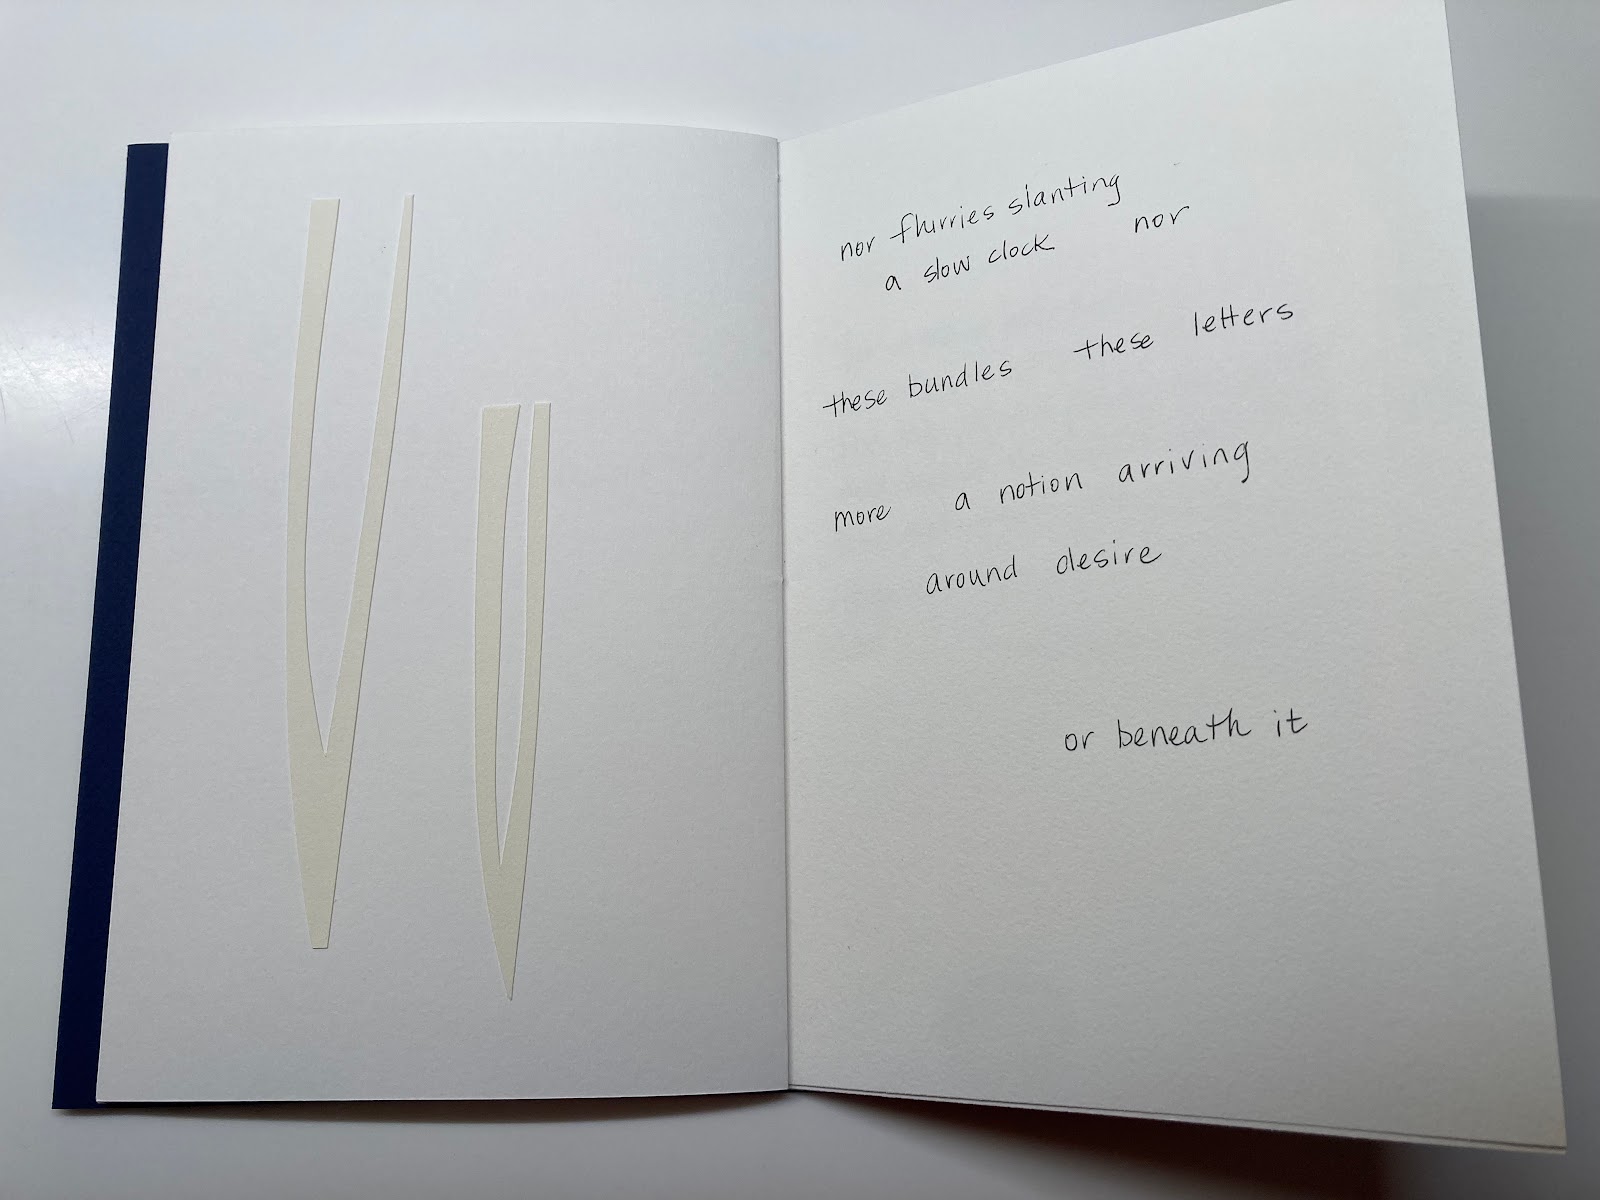 nor flurries slanting
a slow clock nor
these bundles these letters
more a notion arriving
around desire
or beneath it